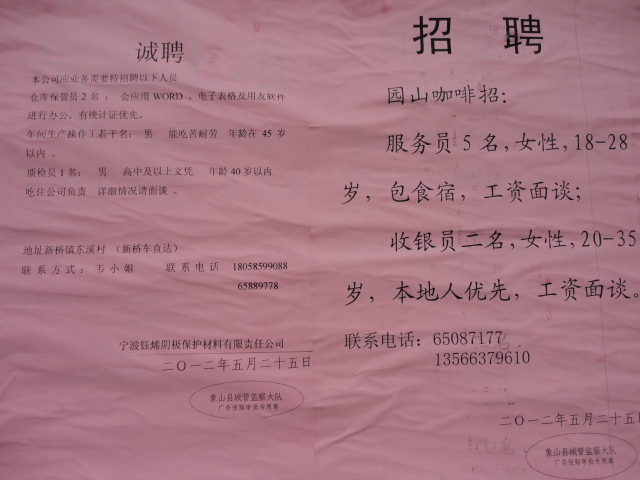 诚聘
本公司应业务需要特招聘以下人员
仓库保管员2名： 会应用WORD 、电子表格及用友软件
进行办公，有统计证优先。
车间生产操作工若干名： 男 能吃苦耐劳 年龄在45岁
以内 。
质检员1名： 男 高中及以上文凭 年龄40岁以内
吃住公司负责 详细情况请面谈 。
地址新桥镇东溪村 （新桥车直达）
联系方式： 韦小姐 联系电话 18058599088
65889778
宁波钰烯阴极保护材料有限责任公司
二〇一二年五月二十五日
象山县城管监察大队
广告张贴审批专用章
招 聘
园山咖啡招：
服务员5名，女性，18-28
岁，包食宿，工资面谈；
收银员二名，女性，20-35
岁，本地人优先，工资面谈。
联系电话：65087177
13566379610
二〇一二年五月二十五日
象山县城管监察大队
广告张贴审批专用章